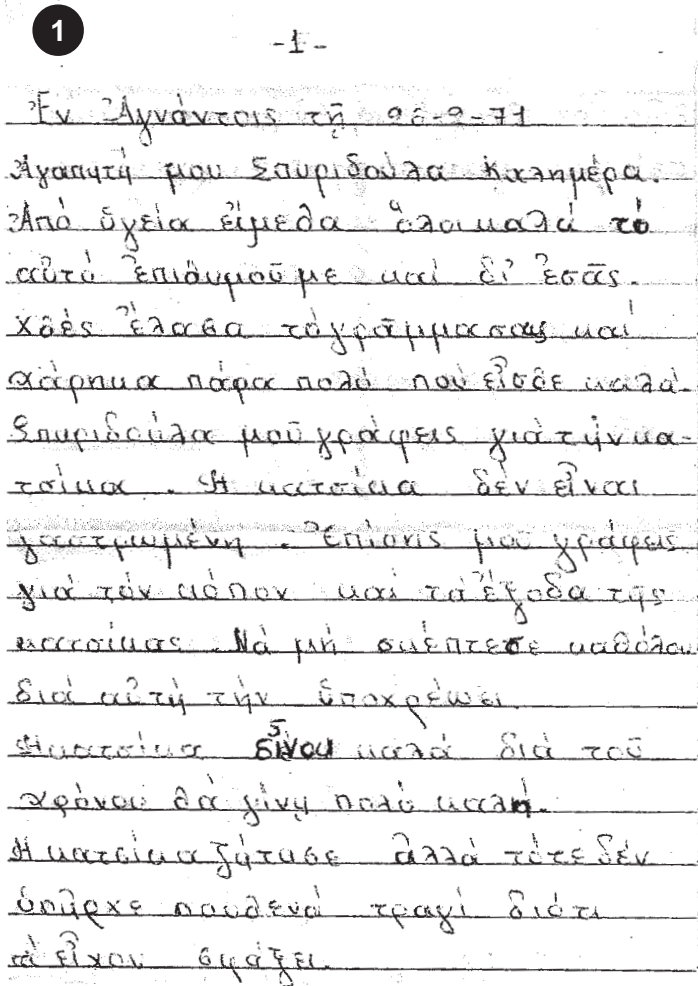 1
-1-
Ἐν Ἀγνάντοις τῇ 26-2-71
Ἀγαπητή μου Σπυριδούλα Καλημέρα.
Ἀπό ὑγεία εἴμεθα ὅλοι καλά τό
αὐτό ἐπιθυμοῦμε καί δι' ἐσᾶς.
Χθές ἔλαβα τό γράμμα σας καί
χάρηκα πάρα πολύ πού εἶσθε καλά.
Σπυριδούλα μοῦ γράφεις γιά τήν κα-
τσίκα. Ἡ κατσίκα δέν εἶναι
γαστρωμένη. Ἐπίσης μοῦ γράφεις
γιά τόν κόπον καί τά ἔξοδα τῆς
κατσίκας. Νά μή σκέπτεσε καθόλου
διά αὐτή τήν ὑποχρέωσι.
Ἡ κατσίκα εἶναι καλά διά τοῦ
χρόνου θά γίνῃ πολύ καλή.
Ἡ κατσίκα ζήτασε ἀλλά τότε δέν
ὑπῆρχε πουθενά τραγί διότι
τά εἶχον σφάξει.